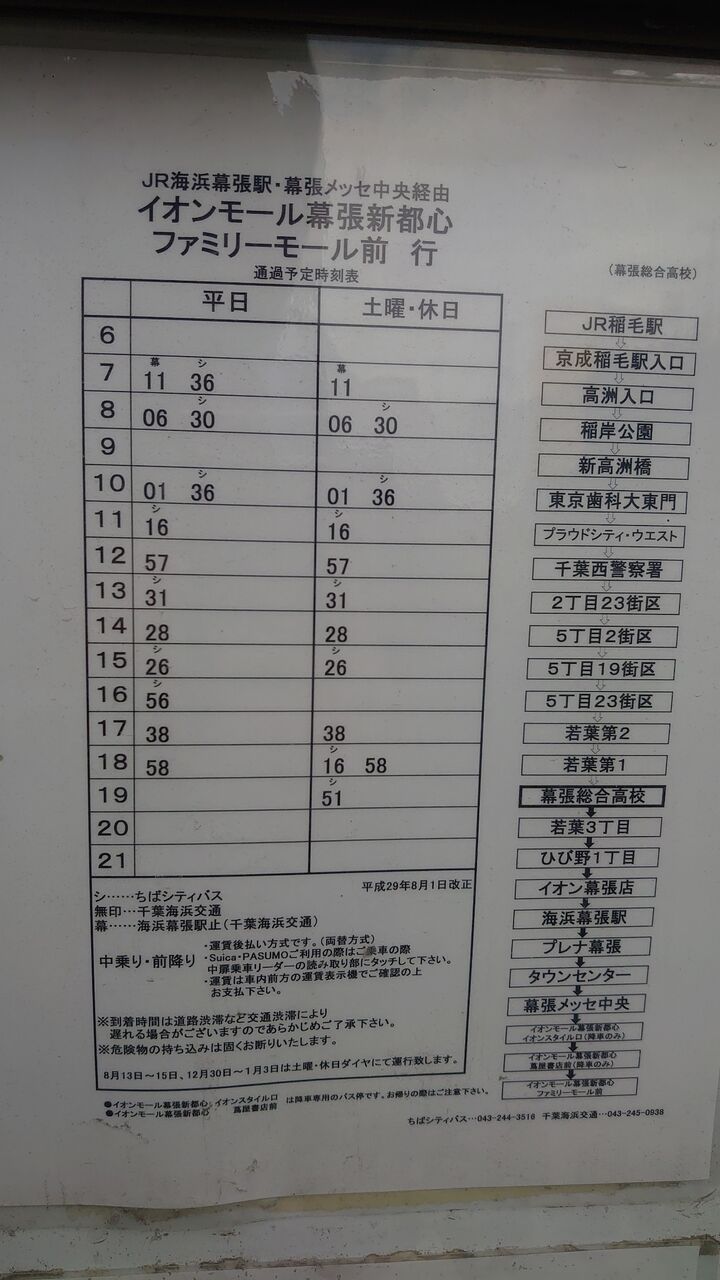 JR海浜幕張駅・幕張メッセ中央経由
イオンモール幕張新都心
ファミリーモール前 行
通過予定時刻表
(幕張総合高校)
平日 土曜・休日
6
7 幕11 シ36 幕11
8 06 シ30 06 シ30
9
10 01 シ36 01 シ36
11 シ16 シ16
12 57 57
13 シ31 シ31
14 28 28
15 シ26 シ26
16 シ56
17 38 38
18 58 シ16 58
19 シ51
20
21
平成29年8月1日改正
シ……ちばシティバス
無印…千葉海浜交通
幕……海浜幕張駅止(千葉海浜交通)
中乗り・前降り
・運賃後払い方式です。(両替方式)
・Suica・PASUMOご利用の際はご乗車の際
中扉乗車リーダーの読み取り部にタッチして下さい。
・運賃は車内前方の運賃表示機でご確認の上
お支払下さい。
※到着時間は道路渋滞など交通渋滞により
遅れる場合がございますのであらかじめご了承下さい。
※危険物の持ち込みは固くお断りいたします。
8月13日~15日、12月30日~1月3日は土曜・休日ダイヤにて運行致します。
●イオンモール幕張新都心 イオンスタイル口
●イオンモール幕張新都心 蔦屋書店前
は降車専用のバス停です。お帰りの際はご注意下さい。
JR稲毛駅
⇩
京成稲毛駅入口
⇩
高洲入口
⇩
稲岸公園
⇩
新高洲橋
⇩
東京歯科大東門
⇩
プラウドシティ・ウエスト
⇩
千葉西警察署
⇩
2丁目23街区
⇩
5丁目2街区
⇩
5丁目19街区
⇩
5丁目23街区
⇩
若葉第2
⇩
若葉第1
⇩
幕張総合高校
⬇
若葉3丁目
⬇
ひび野1丁目
⬇
イオン幕張店
⬇
海浜幕張駅
⬇
プレナ幕張
⬇
タウンセンター
⬇
幕張メッセ中央
⬇
イオンモール幕張新都心
イオンスタイル口(降車のみ)
⬇
イオンモール幕張新都心
蔦屋書店前(降車のみ)
⬇
イオンモール幕張新都心
ファミリーモール前
ちばシティバス…043-244-3516 千葉海浜交通…043-245-0938